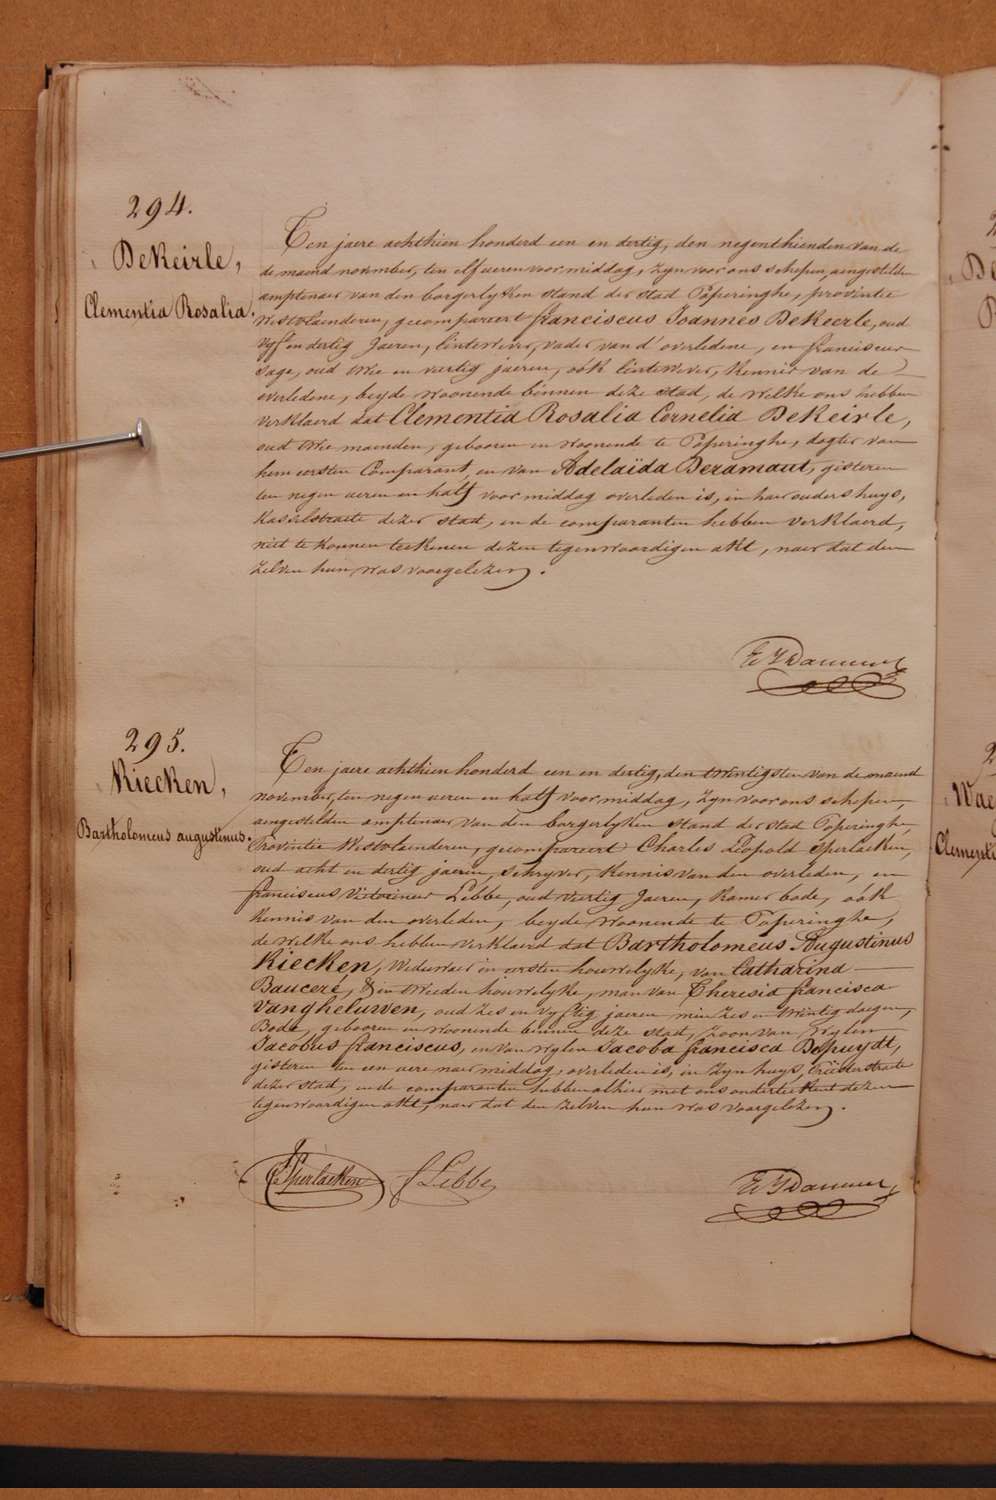 294.
DeKeirle,
Clementia Rosalia.
Ten jaere achthien honderd een en dertig, den negenthienden van de
de maend november, ten elf ueren voor middag, zyn voor ons schepen, aengestelden
amptenaer van den borgerlyken stand der stad Poperinghe, provintie
Westvlaenderen, gecompareert franciscus Joannes DeKeerle, oud
vyf en dertig Jaeren, lintewever, vader van d'overledene, en franciscus
Sage, oud drie en veertig jaeren, oók lintewever, kennis van de
overledene, beyde woonende binnen deze stad, de welke ons hebben
verklaerd dat Clementia Rosalia Cornelia DeKeirle,
oud drie maenden, gebooren en woonende te Poperinghe, dogter van
hem eersten Comparant, en van Adelaïda Deramaut, gisteren
ten negen ueren en half voor middag overleden is, in haer ouders huys,
Kasselstraete dezer stad, en de comparanten hebben verklaerd,
niet te konnen teekenen dezen tegenwoordigen akt, naer dat den
zelven hun was voorgelezen.
295.
Kiecken,
Bartholomeus augustinus.
Ten jaere achthien honderd een en dertig, den twintigsten van de maend
november, ten negen ueren en half voor middag, zyn voor ons schepen,
aengestelden amptenaer van den borgerlyken stand der stad Poperinghe,
Provintie Westvlaenderen, gecompareert Charles Léopold Sperlaeken,
oud acht en dertig jaeren, schryver, kennis van den overleden, en
franciscus Victorinus Lebbe, oud veertig Jaeren, kamer bode, oók
kennis van den overleden, beyde woonende te Poperinghe,
de welke ons hebben verklaerd dat Bartholomeus Augustinus
Kiecken, Weduwaer in eersten houwelyke, van Catharina
Bauceré, & in tweeden houwelyke, man van Theresia francisca
Vangheluwen, oud zes en vyftig jaeren min zes en twintig daegen,
Bode, gebooren en woonende binnen deze stad, zoon van wylen
Jacobus franciscus, en van wylen Jacoba francisca DePuydt,
gisteren ten een uere naer middag, overleden is, in zyn huys,
dezer stad, en de comparanten hebben alhier met ons onderteekent dezen
tegenwoordigen akt, naer dat den zelven hun was voorgelezen.
Sperlaeken f Lebbe